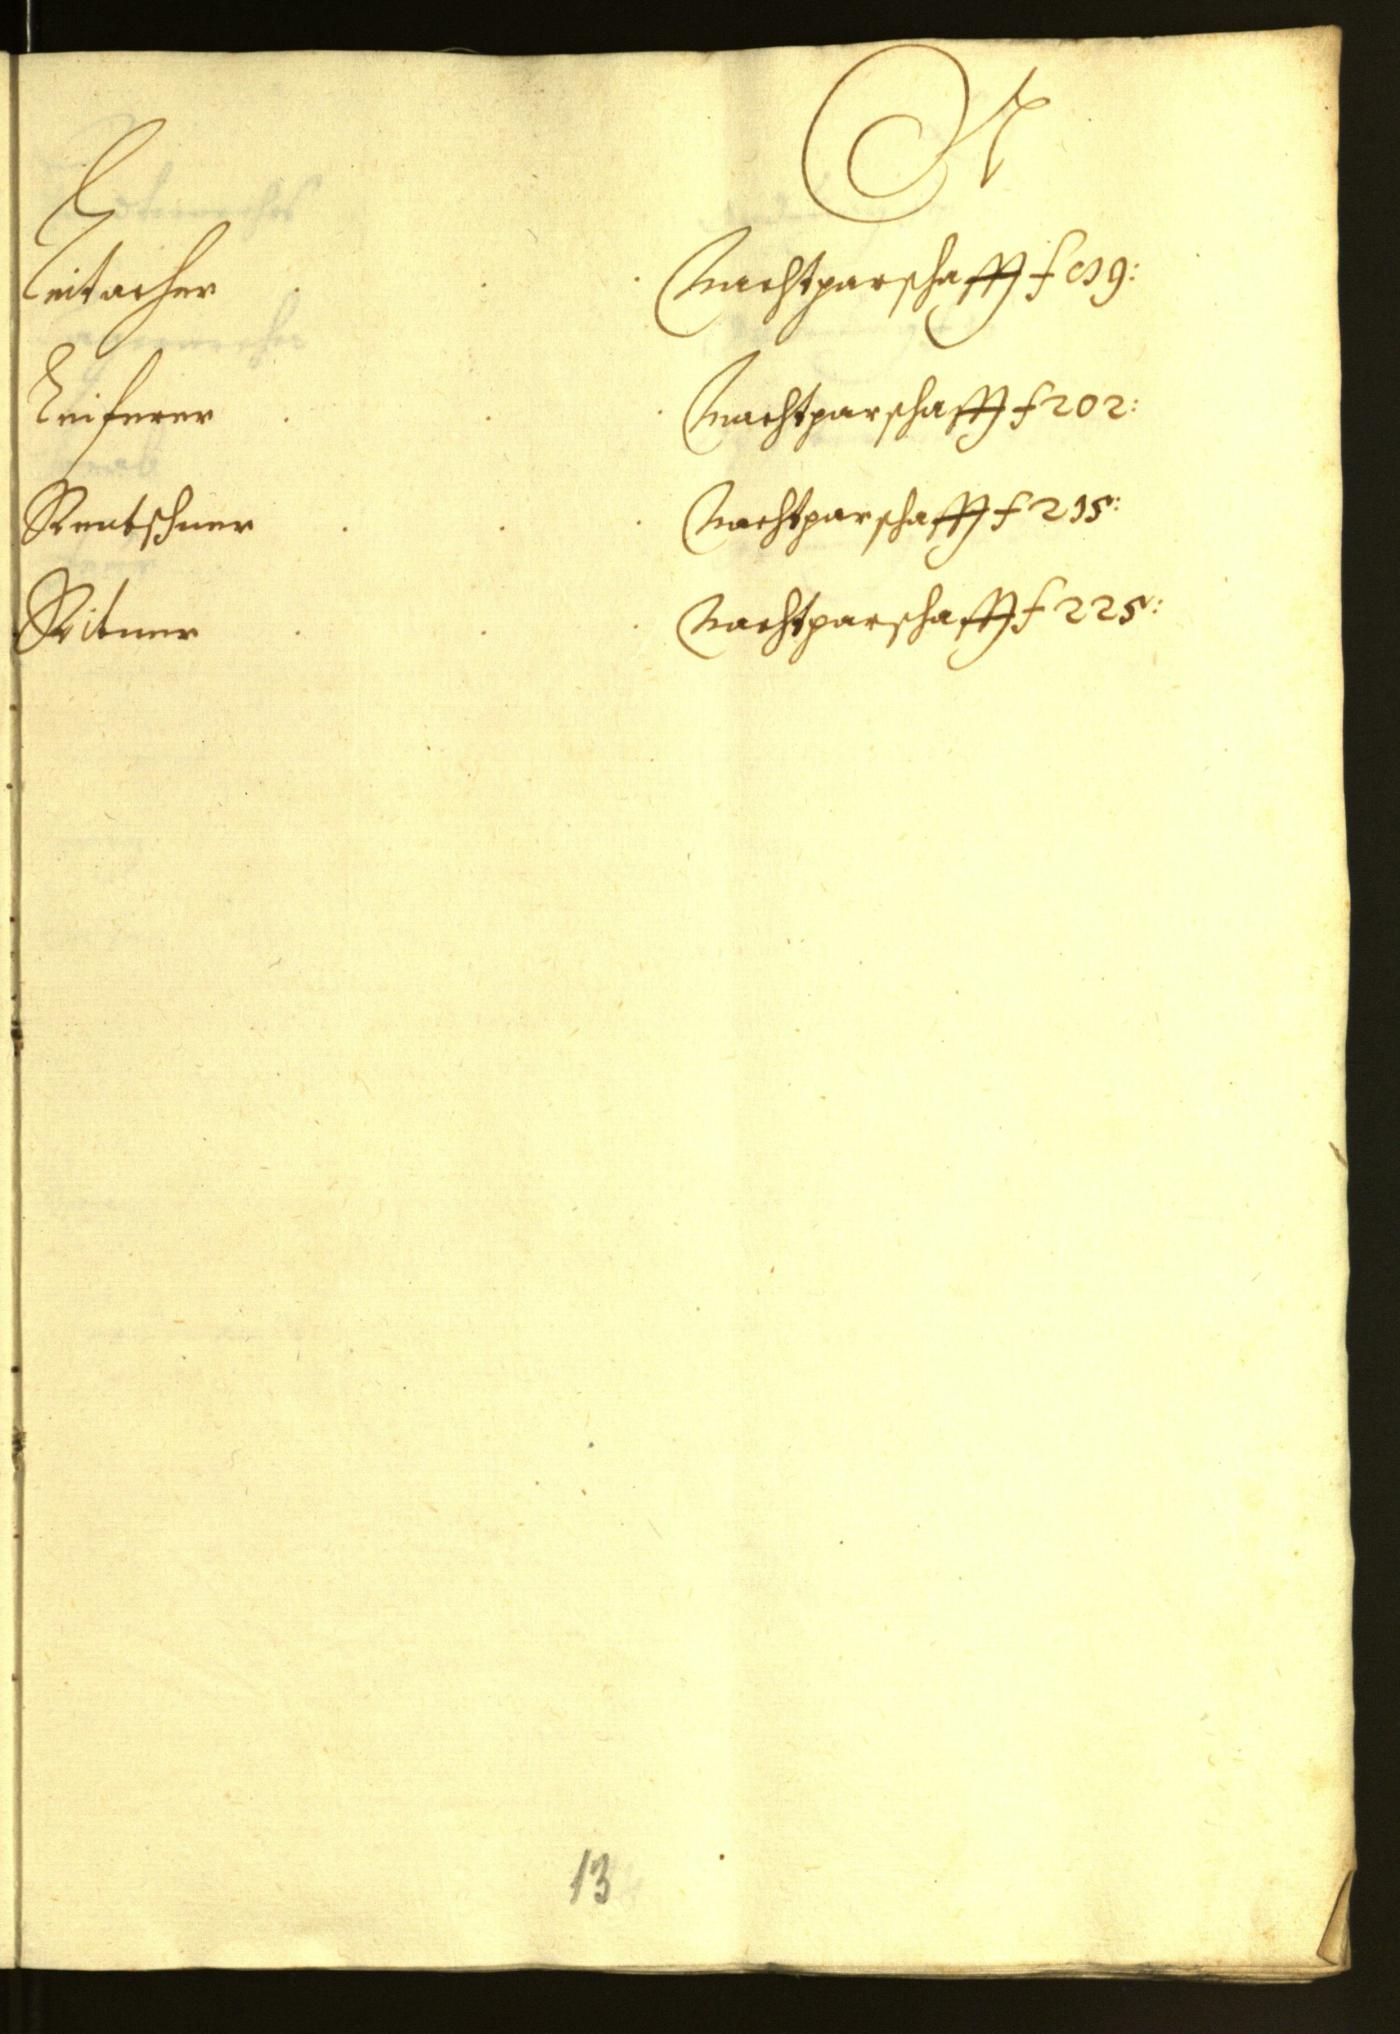 R
Reitacher . . . Nachtparschafft f 199:
Reiserer . . . Nachtparschafft f 202:
Rentschner . . . Nachtparschafft f 215:
Ritner . . . Nachtparschafft f 225:
13